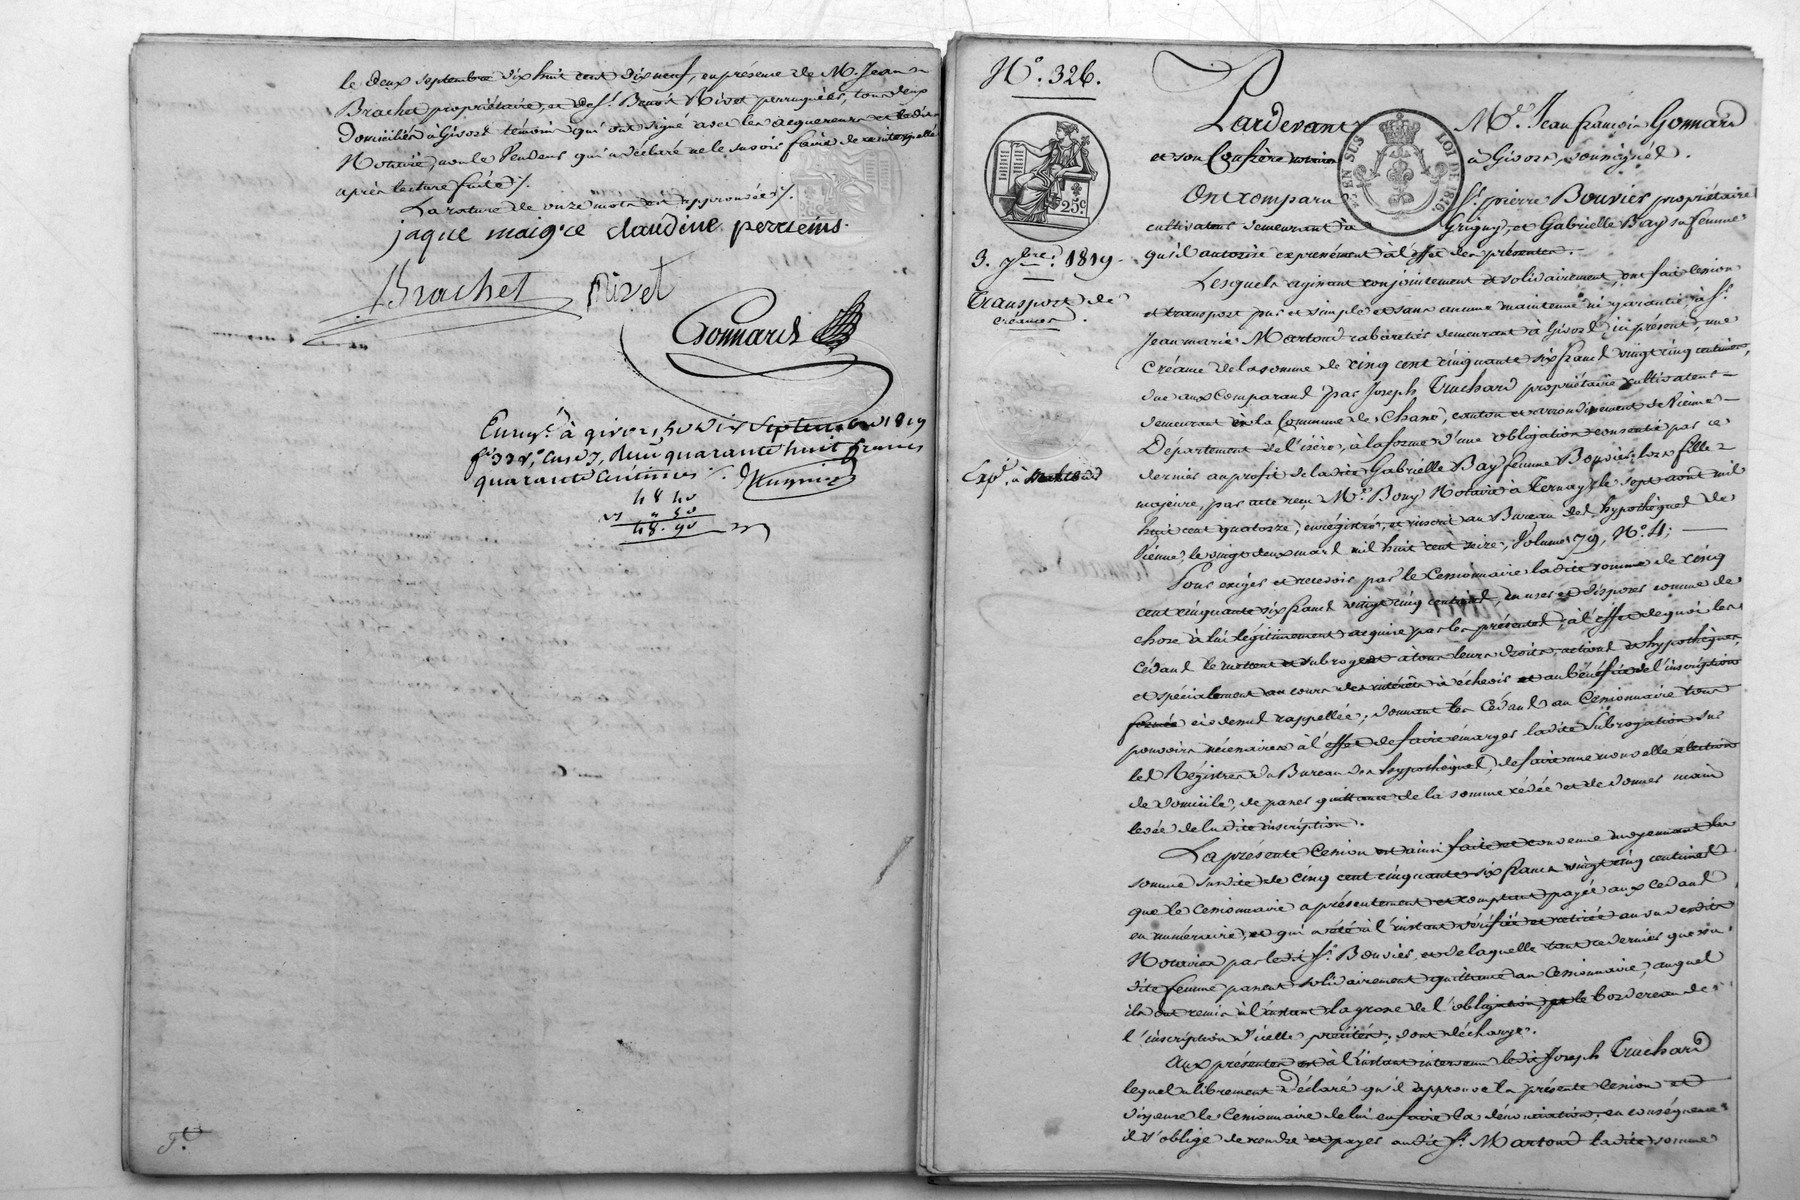 le deux septembre dix huit cent dix neuf, en présence de M. Jean
Brachet propriétaire, et de sr. Benoit Rivet perruquier, tous deux
domiciliés à Givors témoins qui ont signé avec les acquereurs et ledit
Notaire, non le Vendeur qui a déclaré ne le savoir faire de ce interpellé
après lecture faite ./.
La rature de onze mots est approuvée ./.
jaque maigre claudine perrieins.
Brachet Rivet
Gonnard
Enregé. à givors, le dix Septembre 1819
quarante huit francs
quarante Centimes
48 40
50
48. 90
No. 326.
25c
EN SUS
LOI DE 1816
3. 7bre. 1819.
Transport de
créances.
Expé. à Martoud
Pardevant Me. Jean françois Gonnard
et son Confrère notaires à Givors, soussignés.
Ont comparu sr. pierre Bouvier propriétaire
cultivateur demeurant à Grigny, et Gabrielle Bay sa femme
qu'il autorise expressément à l'effet des présentes.
Lesquels agissant conjointement et solidairement, ont fait cession
et transport pur et simple et sans aucune maintenue ni garantie, à sr.
Jean marie Martoud cabaretier demeurant à Givors, ici présent, une
Créance de la somme de cinq cent cinquante six francs vingt cinq centimes,
due aux Comparants par Joseph Truchard propriétaire cultivateur
demeurant en la Commune de Chanas, canton et arrondissement de Vienne
Département de l'isère, à la forme d'une obligation consentie par ce
dernier au profit de ladite Gabrielle Bay femme Bouvier, lors fille
majeure, par acte reçu Me. Bony Notaire à Ternay, le sept août mil
huit cent quatorze, enregistré, et inscrit au Bureau des hypothèques de
Vienne, le vingt deux mars mil huit cent seize, Volume 79, No. 4;
Pour exiger et recevoir par le Cessionnaire ladite somme de cinq
cent cinquante six francs vingt cinq centimes, en user et disposer comme de
chose à lui légitimement acquise par les présentes; à l'effet de quoi les
Cédants le mettent et subrogent à tous leurs droits, actions et hypothèques,
et spécialement au cours des intérêts à échoir et au bénéfice de l'inscription
formée ci-dessus rappellée; donnant les Cédants au Cessionnaire tous
pouvoirs nécessaires à l'effet de faire émarger ladite Subrogation sur
les Régistres du Bureau des hypothèques, de faire une nouvelle élection
de domicile, de passer quittance de la somme cédée et de donner main
levée de ladite inscription.
La présente Cession est ainsi faite et convenue moyennant la
somme susdite de cinq cent cinquante six francs vingt cinq centimes
que le Cessionnaire a présentement et comptant payée aux cédants
en numéraire, et qui a été à l'instant vérifiée et retirée au vu desdits
Notaires par ledit sr. Bouvier, et de laquelle tant ce dernier que sa
dite femme passent solidairement quittance au Cessionnaire, auquel
ils ont remis à l'instant la grosse de l'obligation, et le bordereau de
l'inscription d'icelle précités, dont décharge.
Aux présentes est à l'instant intervenu ledit Joseph Truchard
lequel a librement Déclaré qu'il approuve la présente Cession et
dispense le Cessionnaire de lui en faire la dénonciation; en conséquence
il s'oblige de rendre et payer audit sr. Martoud ladite somme